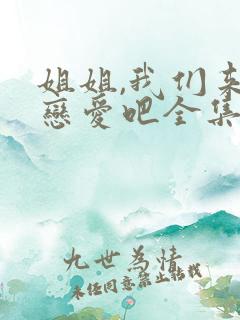 姐姐,我们来
戀愛吧全集
九世為情
未经同意禁止转载